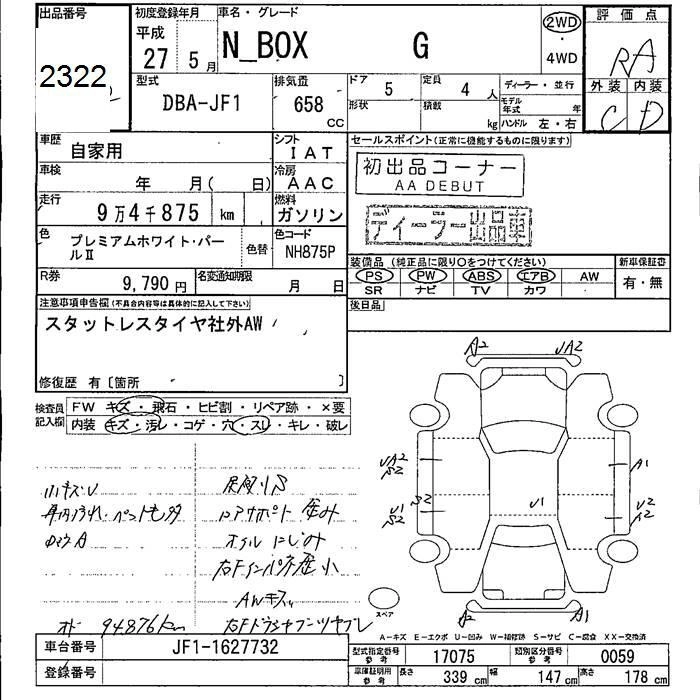 出品番号 初度登録年月 車名・グレード 評価点
2322 平成 27 5月 N_BOX G 2WD・4WD RA
型式 排気量 ドア 5 定員 4人 ディーラー・並行 外装 内装
DBA-JF1 658 CC 形状 積載 kg モデル年式 年 ハンドル 左・右 C D
車歴 自家用 シフト IAT セールスポイント(正常に機能するものに限ります)
車検 年 月( 日) 冷房 AAC 初出品コーナー
AA DEBUT
走行 9万4千875 km 燃料 ガソリン ディーラー出品車
色 プレミアムホワイト・パールII 色替 色コード NH875P
装備品(純正品に限り○をつけてください) 新車保証書
R券 9,790円 名変通知期限 月 日 PS PW ABS エアB AW 有・無
SR ナビ TV カワ
注意事項申告欄(不具合内容等は具体的に記入して下さい) 後日品
スタットレスタイヤ社外AW
修復歴 有〔箇所 〕
検査員記入欄 FW キズ・飛石・ヒビ割・リペア跡・×要
内装 キズ・汚レ・コゲ・穴・スレ・キレ・破レ
A2 UA2
UA2 S2 A1
U1 S2 S2 U1 U2 A2
小キズU
車内汚れ・ペットモ多
リアサポート歪み
オイルにじみ
右Fインパネ歪小
AWキズ
オド 94876km 右Fドラシャブーツヤブレ
スペア A2 A1
A-キズ E-エクボ U-凹み W-補修跡 S-サビ C-腐食 XX-交換済
車台番号 JF1-1627732 型式指定番号 参考 17075 類別区分番号 参考 0059
登録番号 車庫証明用 参考 長さ 339 cm 幅 147 cm 高さ 178 cm